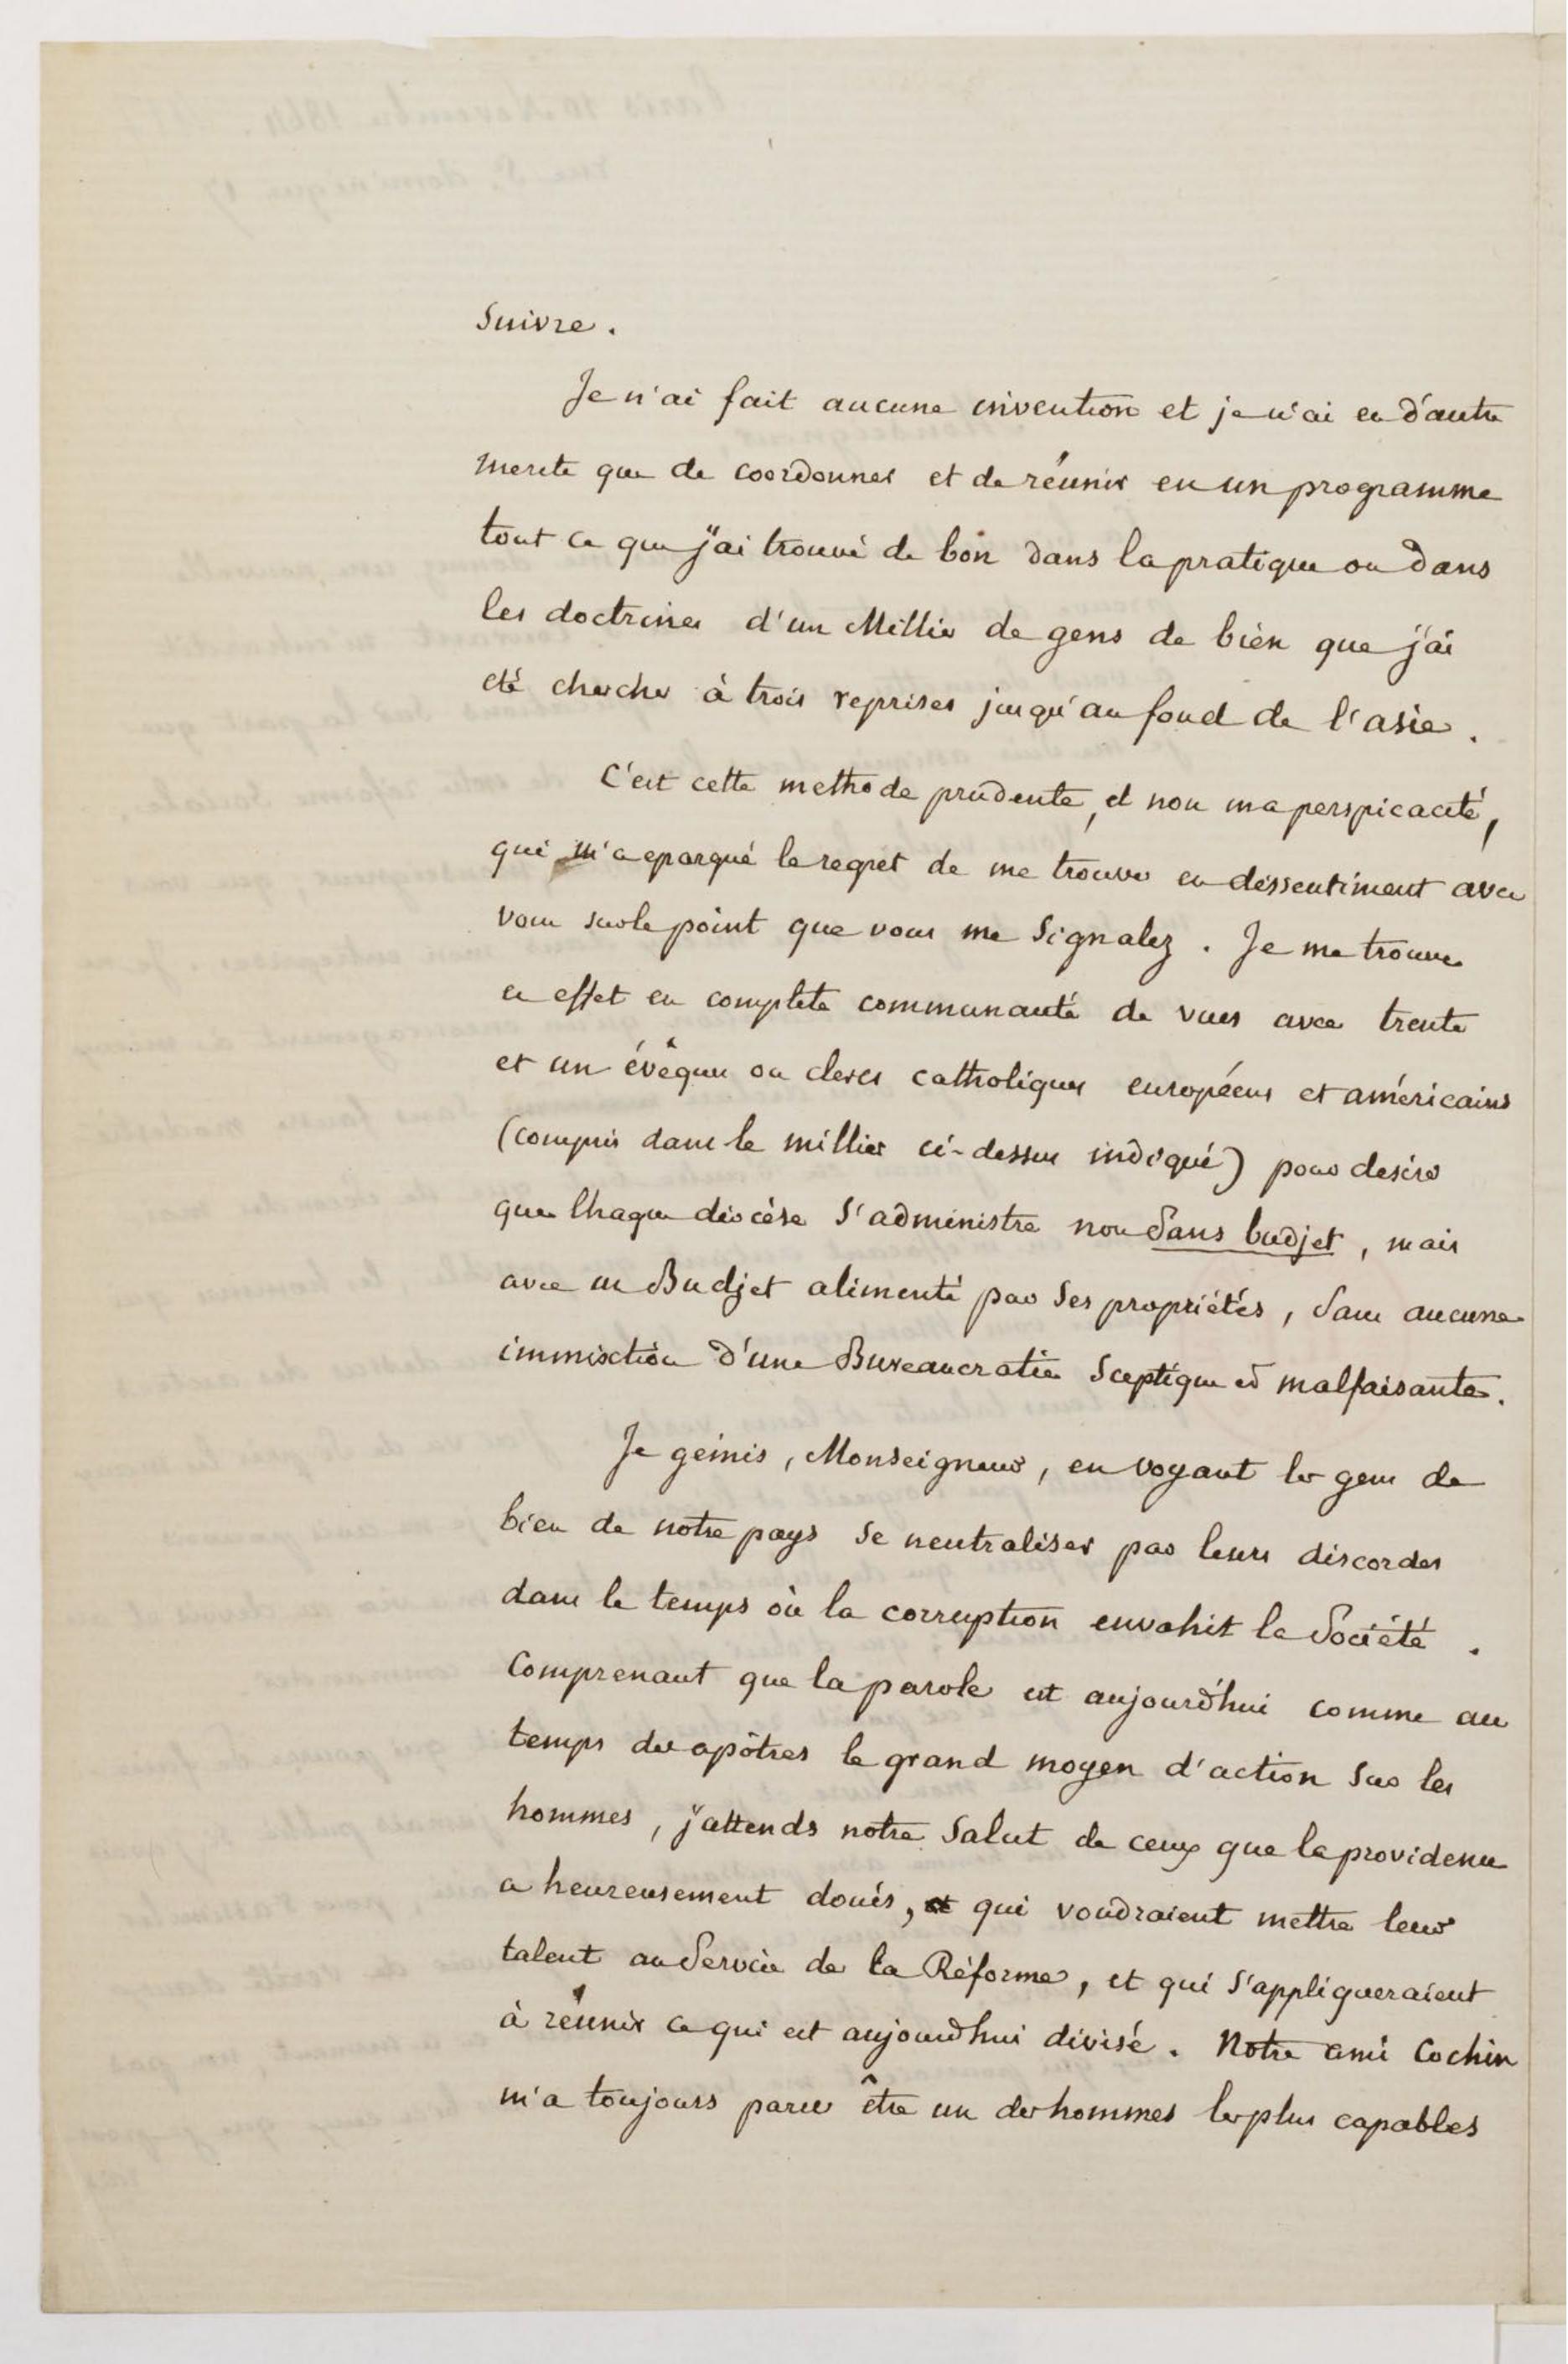 Suivre.
Je n'ai fait aucune invention et je n'ai eu d'autre
merite que de coordonner et de réunir en un programme
tout ce que j'ai trouvé de bon dans la pratique ou dans
les doctrines d'un Millier de gens de bien que j'ai
été chercher à trois reprises jusqu'au fond de l'asie.
C'est cette methode prudente, et non ma perspicacité,
qui m'a epargné le regret de me trouver en dissentiment avec
vous sur le point que vous me Signalez. Je me trouve
en effet en complete communauté de vues avec trente
et un évêques ou clercs catholiques européens et américains
(compris dans le millier ci-dessus indiqué) pour desirer
que Chaque diocèse S'administre non Sans budjet, mais
avec un Budjet alimenté par Ses propriétés, Sans aucune
immixtion d'une Bureaucratie Sceptique et malfaisante.
Je gémis, Monseigneur, en voyant les gens de
bien de notre pays Se neutraliser par leurs discordes
dans le temps où la corruption envahit la Société.
Comprenant que la parole est aujourd'hui comme au
temps des apôtres le grand moyen d'action Sur les
hommes, j'attends notre Salut de ceux que la providence
a heureusement doués, et qui voudraient mettre leur
talent au Service de la Réforme, et qui S'appliqueraient
à réunir ce qui est aujourd'hui divisé. Notre ami Cochin
m'a toujours paru être un des hommes les plus capables